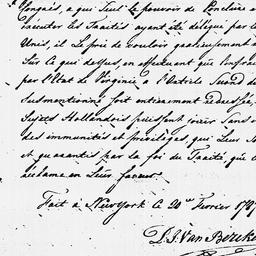 Congrès, a qui Seul le pouvoir de Conclure &
executer les Traités ayant été delégué par l
Unis, il Le prie de vouloir gracieusement
Sur Ce que dessus, en effectuant que l'infrac
par l'Etat de Virginie a l'Article Second d
susmentionné soit entierement redressée,
Sujets Hollandois puissent jouir Sans
des immunités et privileges qui Leur
et garantis par la foi du Traité, que
reclame en Leur faveur.
Fait à NewYork Ce 20me Fevrier 1787
P. J. Van Berckel